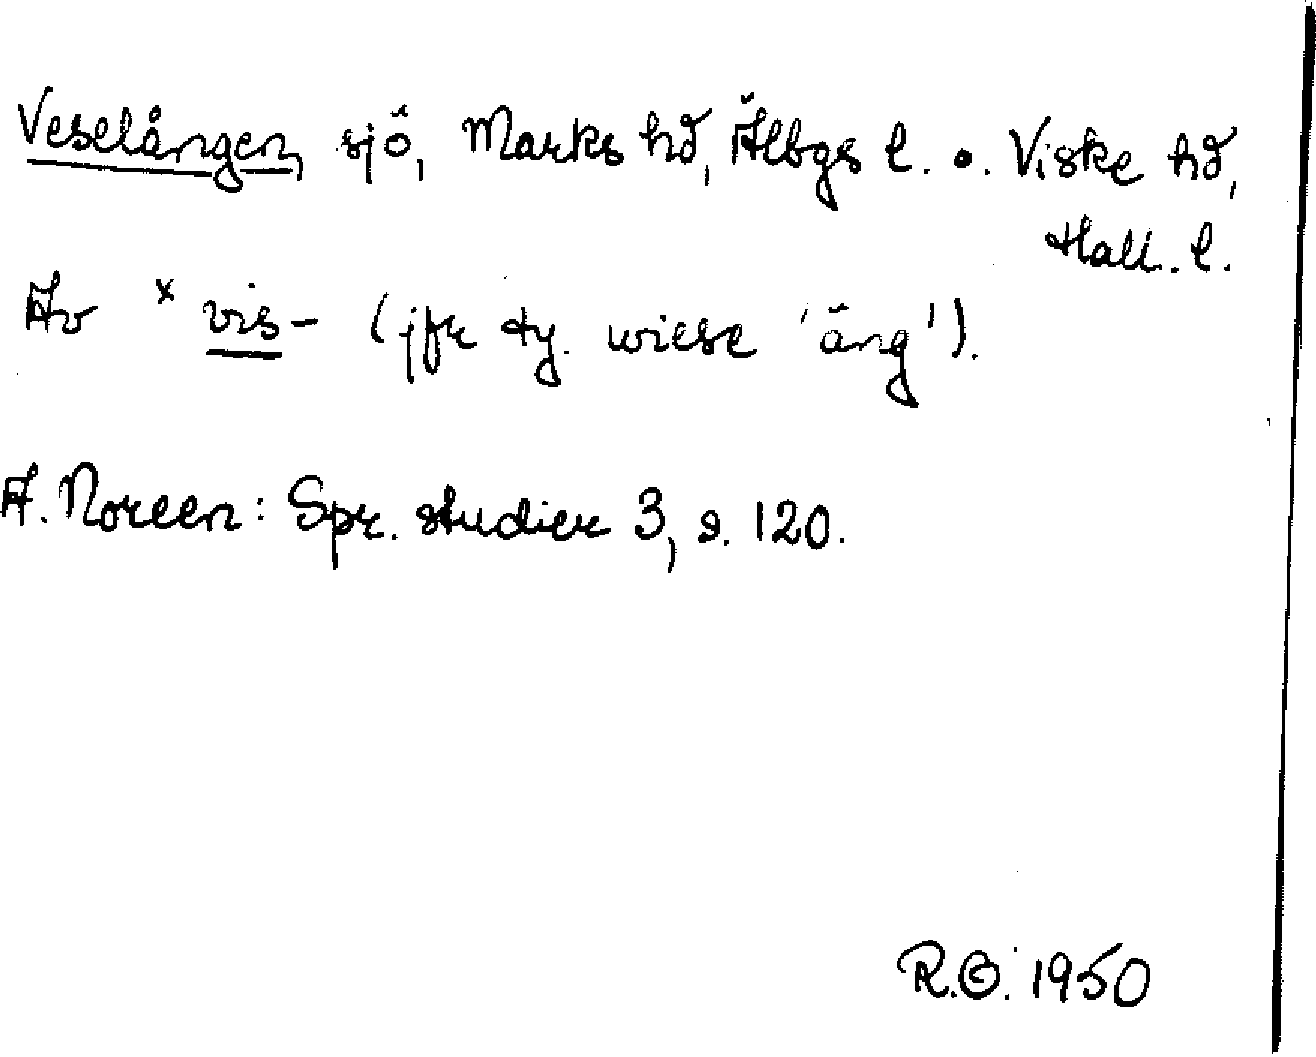 Veselången, sjö, Marks hd, Älbgs l. o. Viske hd,
Hall. l.
Av * vis- (jfr ty. wiese 'äng').
A. Noreen: Spr. studier 3, s. 120.
R.O. 1950